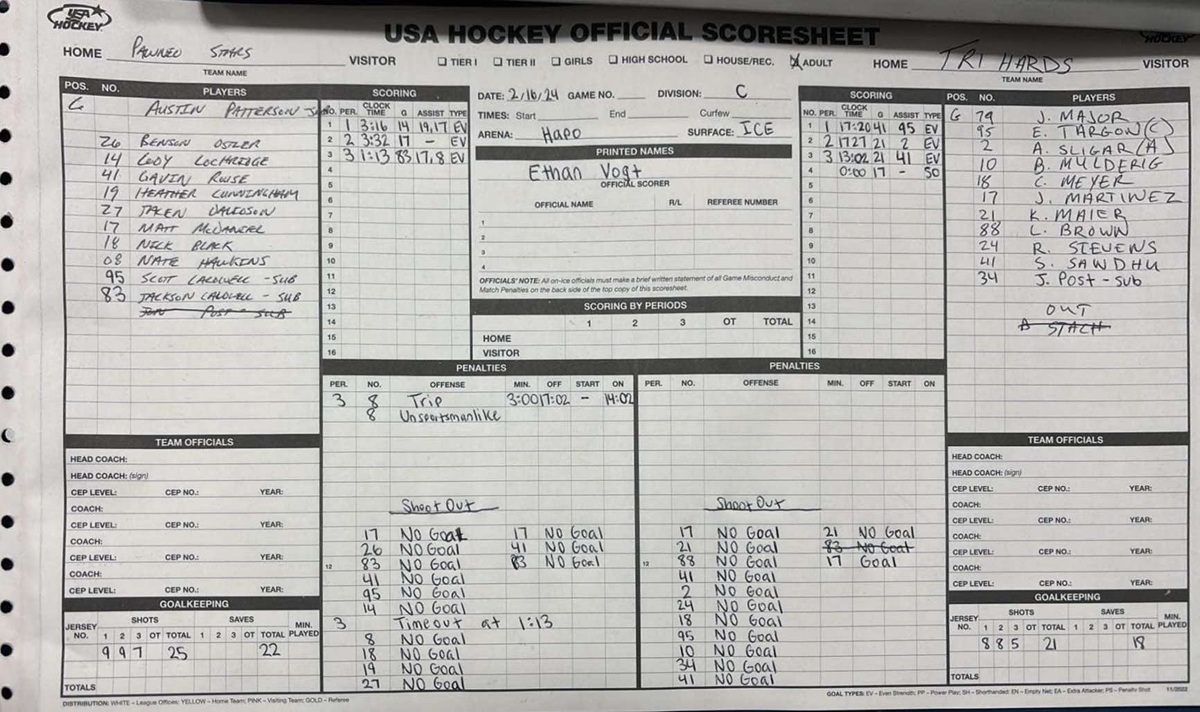 USA HOCKEY
USA HOCKEY OFFICIAL SCORESHEET
HOCKEY
HOME PAWNEO STARS VISITOR
TEAM NAME
TIER I TIER II GIRLS HIGH SCHOOL HOUSE/REC. ADULT
HOME TRI HARDS VISITOR
TEAM NAME
POS. NO. PLAYERS
G AUSTIN PATTERSON
26 BENSON OSTLER
14 CODY LOCHRIDGE
41 GAVIN ROUSE
19 HEATHER CUNNINGHAM
27 JALEN DAVIDSON
17 MATT MCDANIEL
18 NICK BLACK
08 NATE HAWKINS
95 SCOT CALDWELL - SUB
83 JACKSON CALDWELL - SUB
POST - SUB
SCORING
NO. PER. CLOCK TIME G ASSIST TYPE
1 1 3:16 14 19,17 EV
2 2 3:32 17 - EV
3 3 1:13 83 17,8 EV
4
5
6
7
8
9
10
11
12
13
14
15
16
DATE: 2/16/24 GAME NO. DIVISION: C
TIMES: Start End Curfew
ARENA: Hapo SURFACE: ICE
PRINTED NAMES
Ethan Vogt
OFFICIAL SCORER
OFFICIAL NAME R/L REFEREE NUMBER
1
2
3
4
OFFICIALS' NOTE: All on-ice officials must make a brief written statement of all Game Misconduct and
Match Penalties on the back side of the top copy of this scoresheet.
SCORING BY PERIODS
1 2 3 OT TOTAL
HOME
VISITOR
SCORING
NO. PER. CLOCK TIME G ASSIST TYPE
1 1 17:20 41 95 EV
2 2 1727 21 2 EV
3 3 13:02 21 41 EV
4 0:00 17 - SO
5
6
7
8
9
10
11
12
13
14
15
16
POS. NO. PLAYERS
G 79 J. MAJOR
95 E. TARGON (C)
2 A. SLIGAR (A)
10 B. MULDERIG
18 C. MEYER
17 J. MARTINEZ
21 K. MAIER
88 L. BROWN
24 R. STEVENS
41 S. SANDHU
34 J. POST - SUB
OUT
A STACH
PENALTIES
PER. NO. OFFENSE MIN. OFF START ON
3 8 Trip 3:00 17:02 - 14:02
8 Unsportsmanlike
Shoot Out
17 NO Goal 17 NO Goal
26 NO Goal 41 NO Goal
12 83 NO Goal 83 NO Goal
41 NO Goal
95 NO Goal
14 NO Goal
3 Timeout at 1:13
8 NO Goal
18 NO Goal
19 NO Goal
27 NO Goal
PENALTIES
PER. NO. OFFENSE MIN. OFF START ON
Shoot Out
17 NO Goal 21 NO Goal
21 NO Goal 83 NO Goal
12 88 NO Goal 17 Goal
41 NO Goal
2 NO Goal
24 NO Goal
18 NO Goal
95 NO Goal
10 NO Goal
34 NO Goal
41 NO Goal
TEAM OFFICIALS
HEAD COACH:
HEAD COACH: (sign)
CEP LEVEL: CEP NO.: YEAR:
COACH:
CEP LEVEL: CEP NO.: YEAR:
COACH:
CEP LEVEL: CEP NO.: YEAR:
COACH:
CEP LEVEL: CEP NO.: YEAR:
GOALKEEPING
SHOTS SAVES
JERSEY NO. 1 2 3 OT TOTAL 1 2 3 OT TOTAL MIN. PLAYED
9 9 7 25 22
TOTALS
TEAM OFFICIALS
HEAD COACH:
HEAD COACH: (sign)
CEP LEVEL: CEP NO.: YEAR:
COACH:
CEP LEVEL: CEP NO.: YEAR:
COACH:
CEP LEVEL: CEP NO.: YEAR:
COACH:
CEP LEVEL: CEP NO.: YEAR:
GOALKEEPING
SHOTS SAVES
JERSEY NO. 1 2 3 OT TOTAL 1 2 3 OT TOTAL MIN. PLAYED
8 8 5 21 18
TOTALS
DISTRIBUTION: WHITE – League Offices; YELLOW – Home Team; PINK – Visiting Team; GOLD – Referee
GOAL TYPES: EV – Even Strength; PP – Power Play; SH – Shorthanded; EN – Empty Net; EA – Extra Attacker; PS – Penalty Shot 11/2022